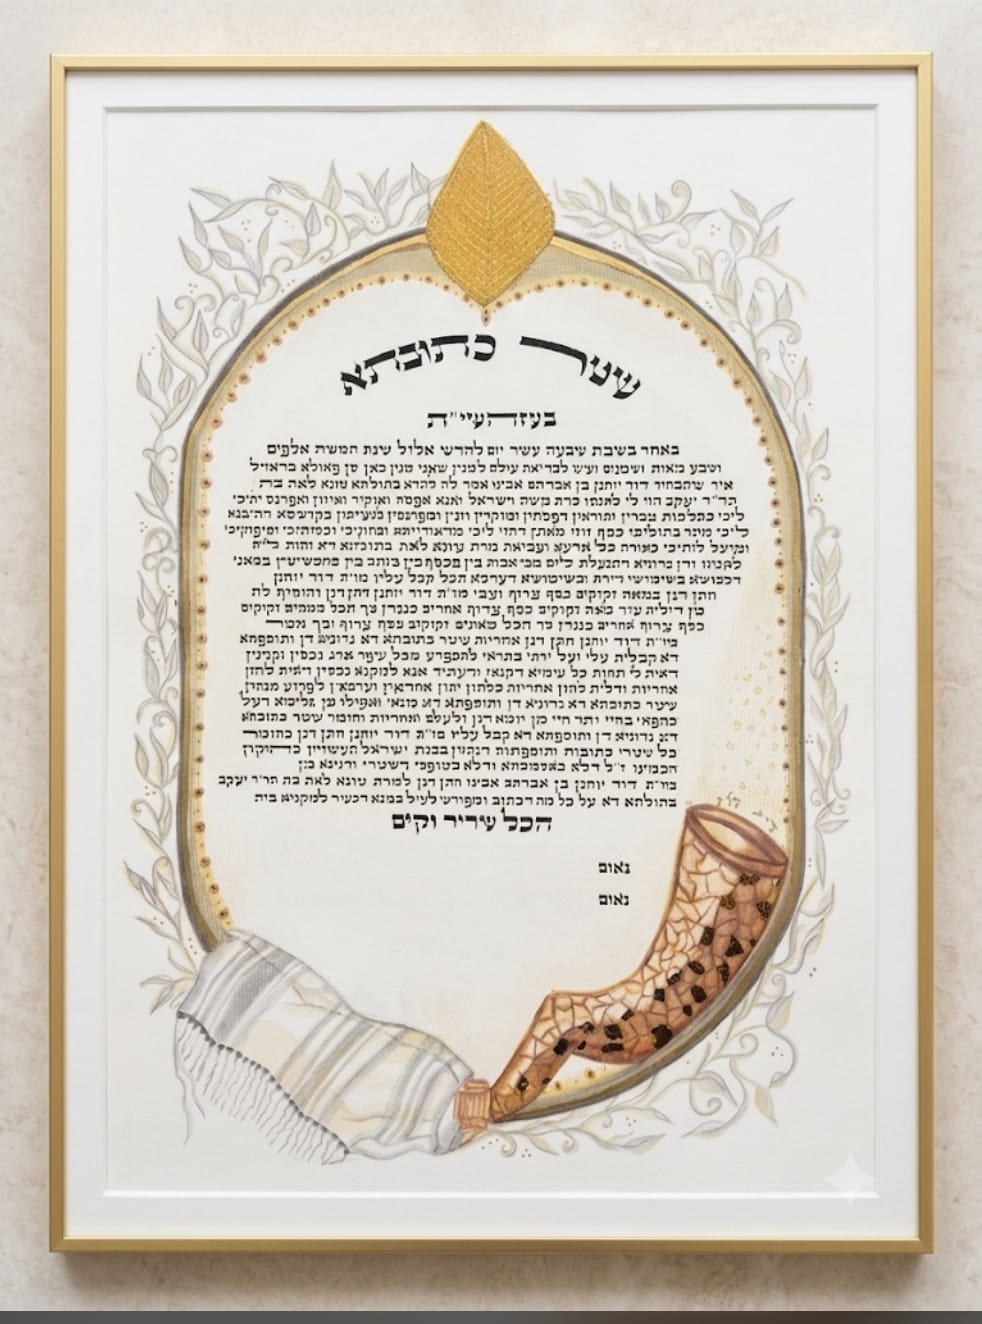 שטר כתובתא
בעזהשי״ת
באחר בשבת שבעה עשר יום לחדש אלול שנת חמשה אלפים
ושבע מאות ושמנים לבריאת עולם למנין שאני מנין כאן סן פאולא בראזיל
איך דוד יוחנן בן אברהם אבינו אמר לה להדא בתולתא לאה בת
הר״ר יעקב הוי לי לאנתו כדת משה וישראל ואנא אפלח ואוקיר ואיזון ואפרנס יתיכי
ליכי כהלכות גוברין יהודאין דפלחין ומוקרין וזנין ומפרנסין
ליכי כסף זוזי מאתן דחזי ליכי ומזוניכי וכסותיכי וסיפוקיכי
ומיעל לותיכי כאורח כל ארעא וצביאת מרת לאה בתולתא דא והות ליה
לאנתו ודן נדוניא דהנעלת ליה מבי אבוה בין בכסף בין בזהב בין בתכשיטין במאני
דלבושא בשימושי דירה ובשימושא דערסא הכל קבל עליו מו״ה דוד יוחנן
חתן דנן במאה זקוקים כסף צרוף וצבי מו״ה דוד יוחנן חתן דנן והוסיף לה
מן דיליה עוד מאה זקוקים כסף צרוף אחרים כנגדן סך הכל מאתים זקוקים
כסף צרוף
מו״ה דוד יוחנן חתן דנן אחריות שטר כתובתא דא נדוניא דן ותוספתא
דא קבלית עלי ועל ירתי בתראי להתפרע מכל שפר ארג נכסין וקנינין
דאית לי תחות כל שמיא דקנאי ודעתיד אנא למקנא נכסין דאית להון
אחריות ודלית להון אחריות כלהון יהון אחראין וערבאין לפרוע מנהון
שטר כתובתא דא נדוניא דן ותוספתא דא מנאי ואפילו מן גלימא דעל
כתפאי בחיי ובתר חיי מן יומא דנן ולעלם ואחריות וחומר שטר כתובתא
דא נדוניא דן ותוספתא דא קבל עליו מו״ה דוד יוחנן חתן דנן כחומר
כל שטרי כתובות ותוספתות דנהגין בבנת ישראל העשויין כתיקון
חכמינו ז״ל דלא כאסמכתא ודלא כטופסי דשטרי וקנינא מן
מו״ה דוד יוחנן בן אברהם אבינו חתן דנן למרת לאה בת הר״ר יעקב
בתולתא דא על כל מה דכתוב ומפורש לעיל במנא דכשר למקניא ביה
הכל שריר וקים
נאום
נאום